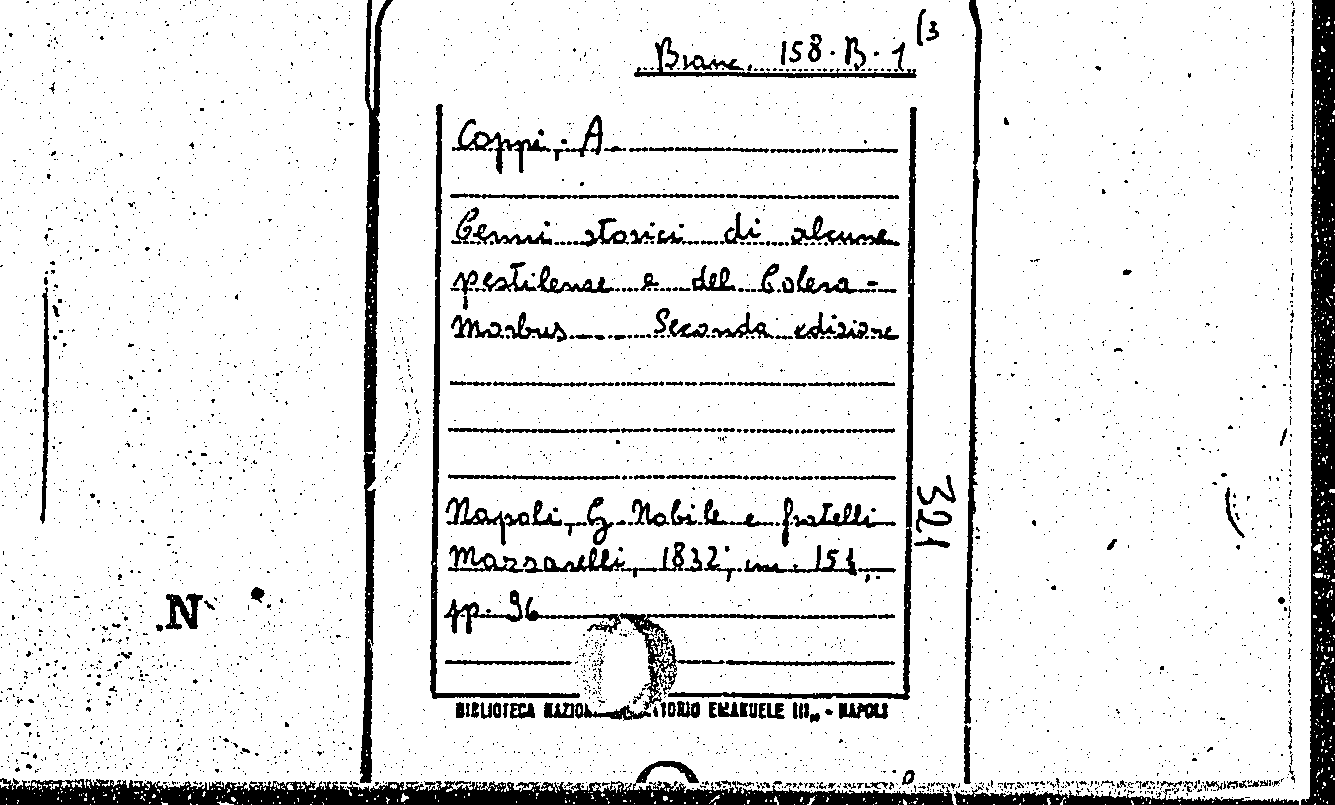 Branc. 158.B.1 (3
Coppi, A.
Cenni storici di alcune
pestilenze e del Colera-
Morbus... Seconda edizione
Napoli, G. Nobile e fratelli
Mazzarelli, 1832; cm. 15½,
pp. 96
321
.N
BIBLIOTECA NAZION EMANUELE III„ - NAPOLI